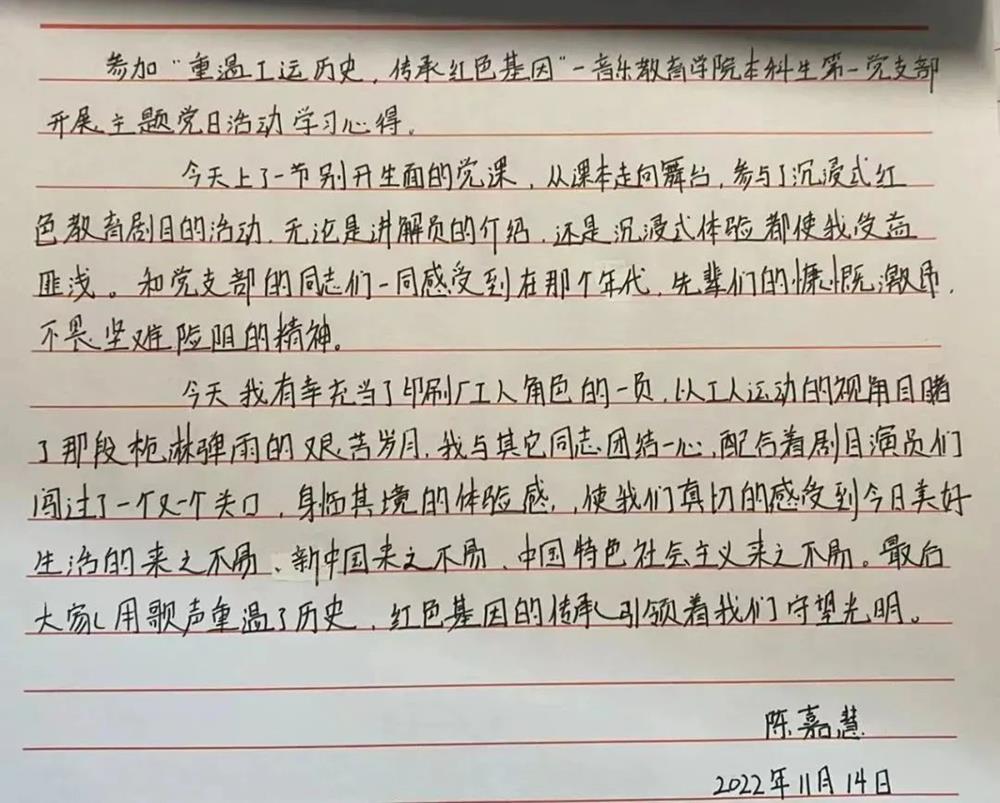 参加“重温工运历史，传承红色基因”－音乐教育学院本科生第一党支部
开展主题党日活动学习心得。
今天上了一节别开生面的党课，从课本走向舞台，参与了沉浸式红
色教育剧目的活动，无论是讲解员的介绍，还是沉浸式体验都使我受益
匪浅。和党支部的同志们一同感受到在那个年代，先辈们的慷慨激昂，
不畏坚难险阻的精神。
今天我有幸充当了印刷厂工人角色的一员，以工人运动的视角目睹
了那段枪淋弹雨的艰苦岁月，我与其它同志团结一心，配合着剧目演员们
闯过了一个又一个关口，身临其境的体验感，使我们真切的感受到今日美好
生活的来之不易、新中国来之不易、中国特色社会主义来之不易。最后
大家用歌声重温了历史，红色基因的传承引领着我们守望光明。
陈嘉慧
2022年11月14日